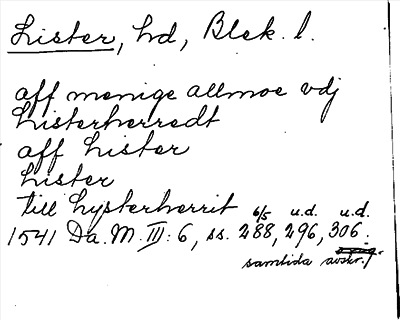 Lister, hd, Blek. l.
aff menige allmoe vdj
Listerherredt
aff Lister
Lister
till Lysterherrit 6/5 u.d. u.d.
1541 Da. M. III: 6, ss. 288, 296, 306.
samtida avskr.